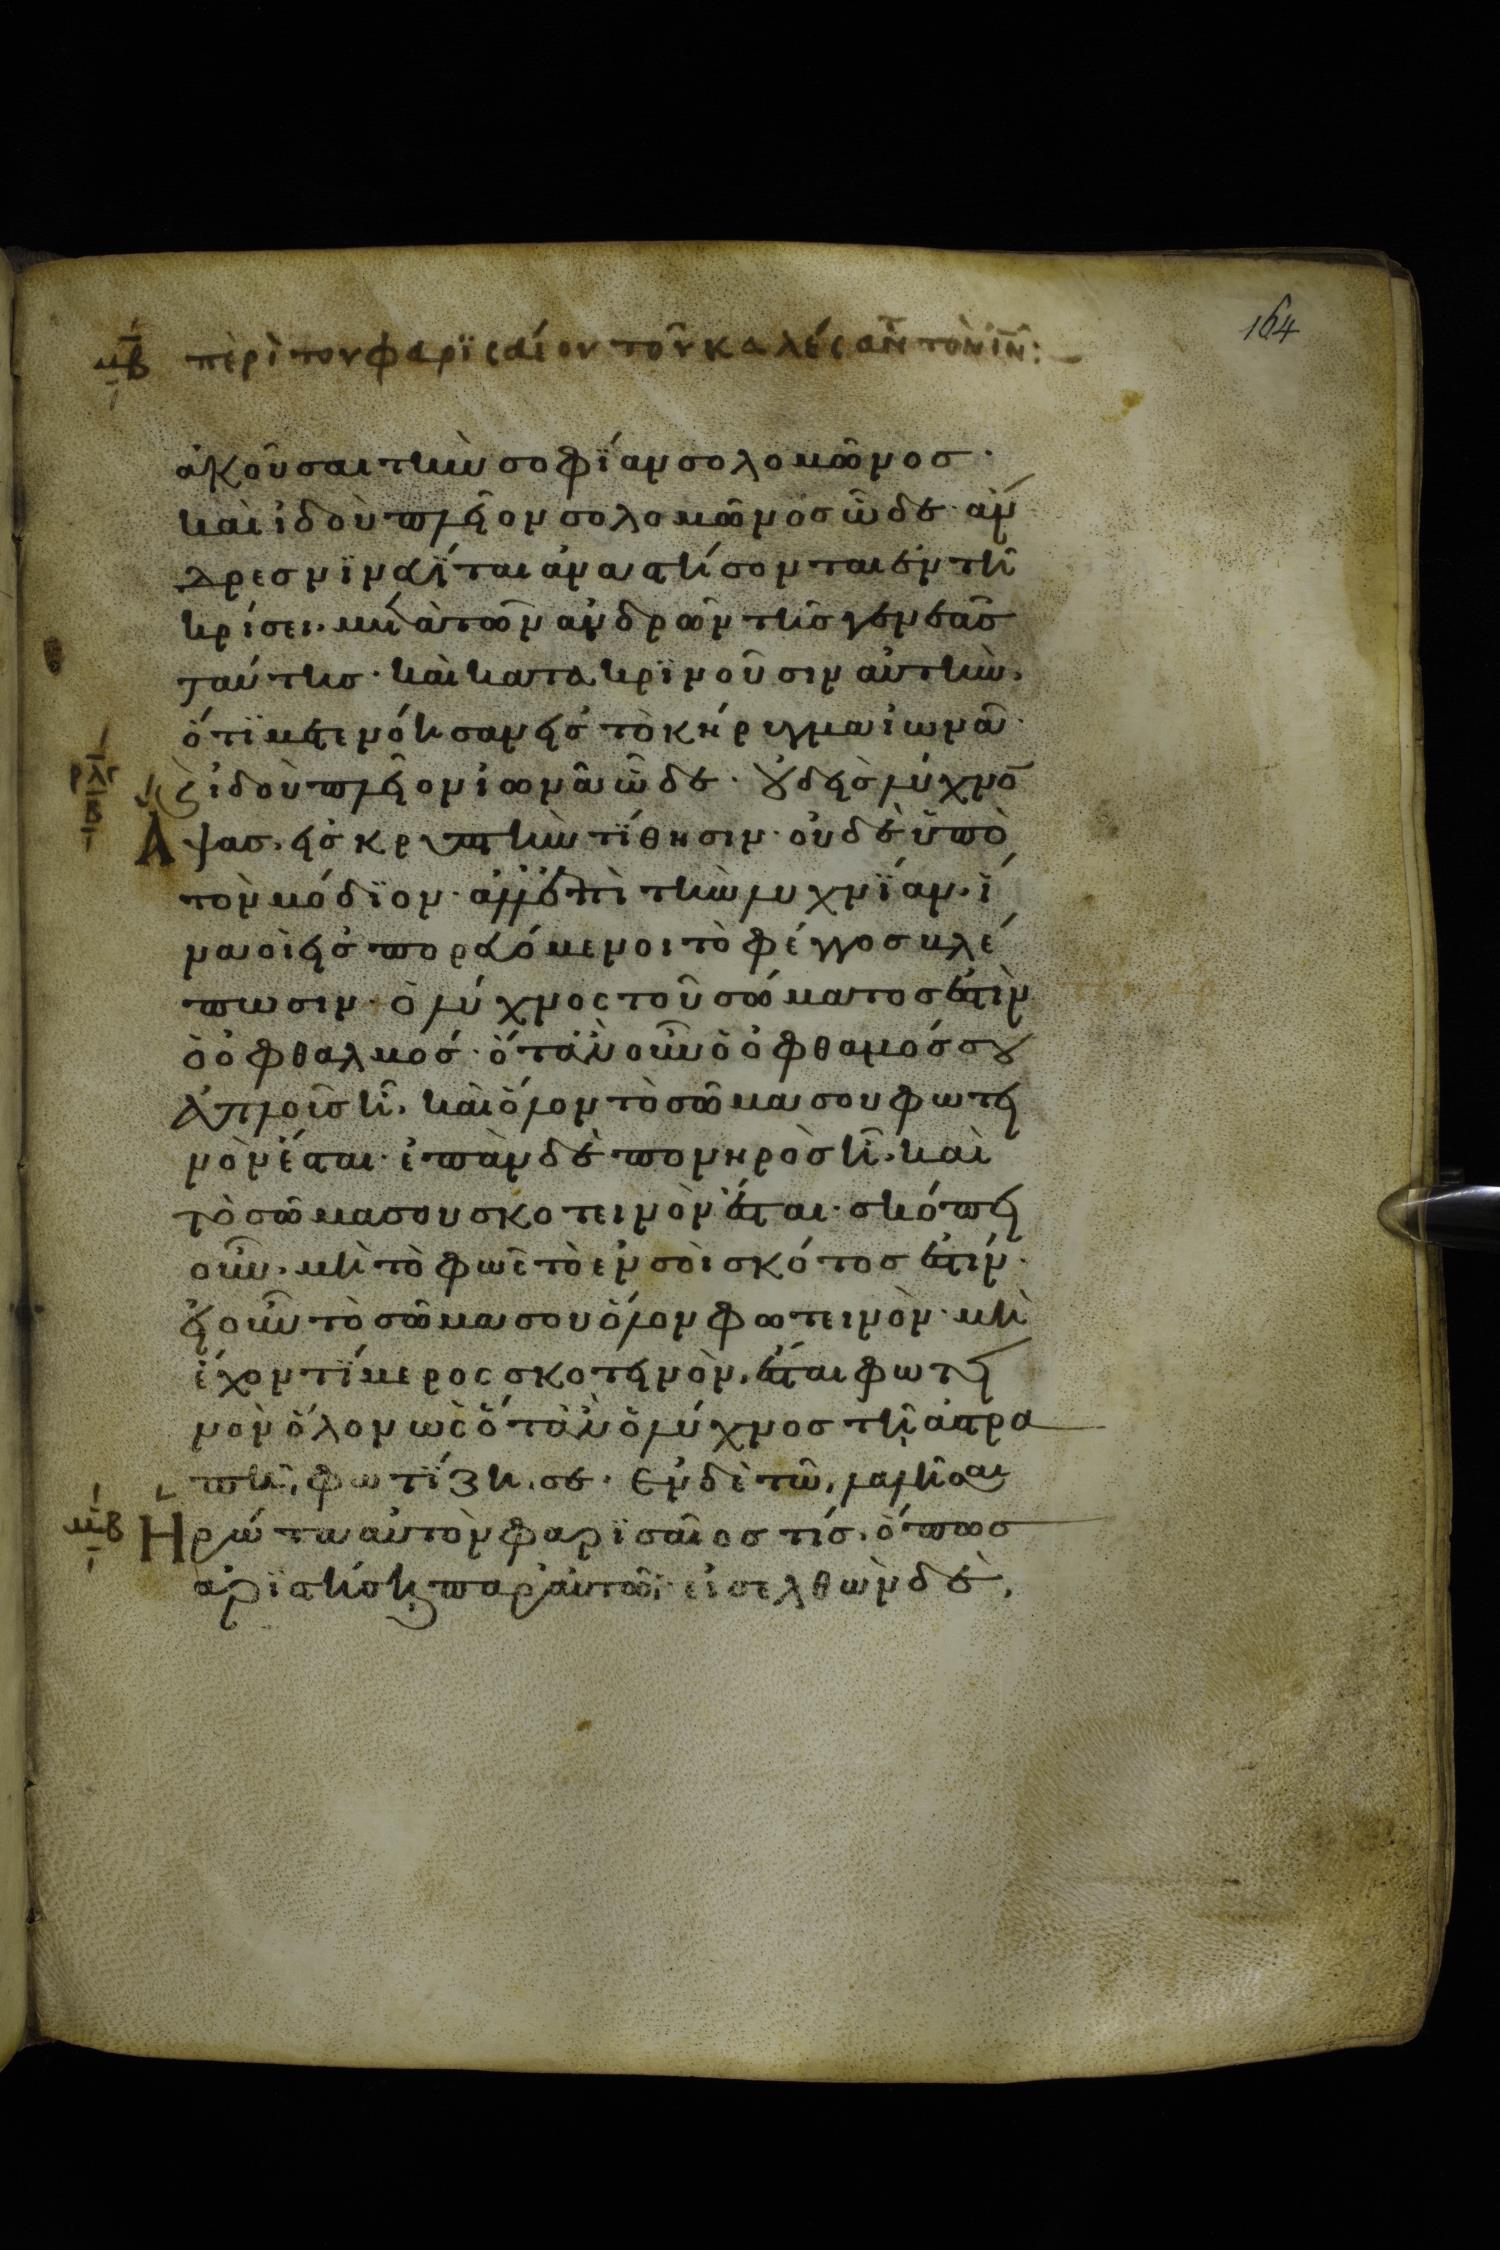 164
μβ περὶ του φαρϊσαίου τοῦ καλέσαντ τὸν ἰν:
ἀκοῦσαι τὴν σοφΐαν σολομῶνος·
καὶ ἰδοὺ πλεῖον σολομῶνος ὧδε· ἄν
δρες νϊνευΐται ἀναστήσονται ἐν τῆ
κρίσει· μετὰ τῶν ἀνδρῶν τῆς γενεᾶς
ταύτης· καὶ κατακρϊνοῦσιν αὐτὴν·
ὅτϊ μετενόησαν εἰς τὸ κήρυγμα ἰωνᾶ·
ϗ ἰδοὺ πλεῖον ἰωνᾶ ὧδε· οὐδεὶς λύχνο
ρλγ
β
Ἁψας· εἰς κρυπτὴν τΐθησιν· οὐδὲ ὑπὸ
τὸν μόδϊον· ἀλλ' ἐπὶ τὴν λυχνΐαν· ἵ
να οἱ εἰσπορευόμενοι τὸ φέγγος βλέ
πωσιν· ὁ λύχνος τοῦ σώματος ἐστὶν
ὁ ὀφθαλμός· ὅτἂν οὖν ὁ ὀφθαμός σου
ἁπλοῦς ῆ· καὶ ὅλον τὸ σῶμα σου φωτει
νὸν ἔσται· ἐπὰν δὲ πονηρὸς ῆ· καὶ
τὸ σῶμα σου σκοτεινὸν ἔσται· σκόπει
οὖν· μὴ τὸ φῶς τὸ ἐν σοὶ σκότος ἐστίν·
εἰ οὖν τὸ σῶμα σου ὅλον φωτεινὸν· μὴ
ἔχον τΐ μερος σκοτεινὸν· ἔσται φωτει
νὸν ὅλον ὡς ὅτἂν ὁ λύχνος τῆ ἀστρα
πῆ, φωτΐζη, σε· Εν δὲ τῶ, λαλῆσαι
μβ Ἠρώτα αὐτὸν φαρϊσαῖος τίς· ὅπως
ἀρϊστήση παρ' αὐτῶ· εἰσελθὼν δὲ,